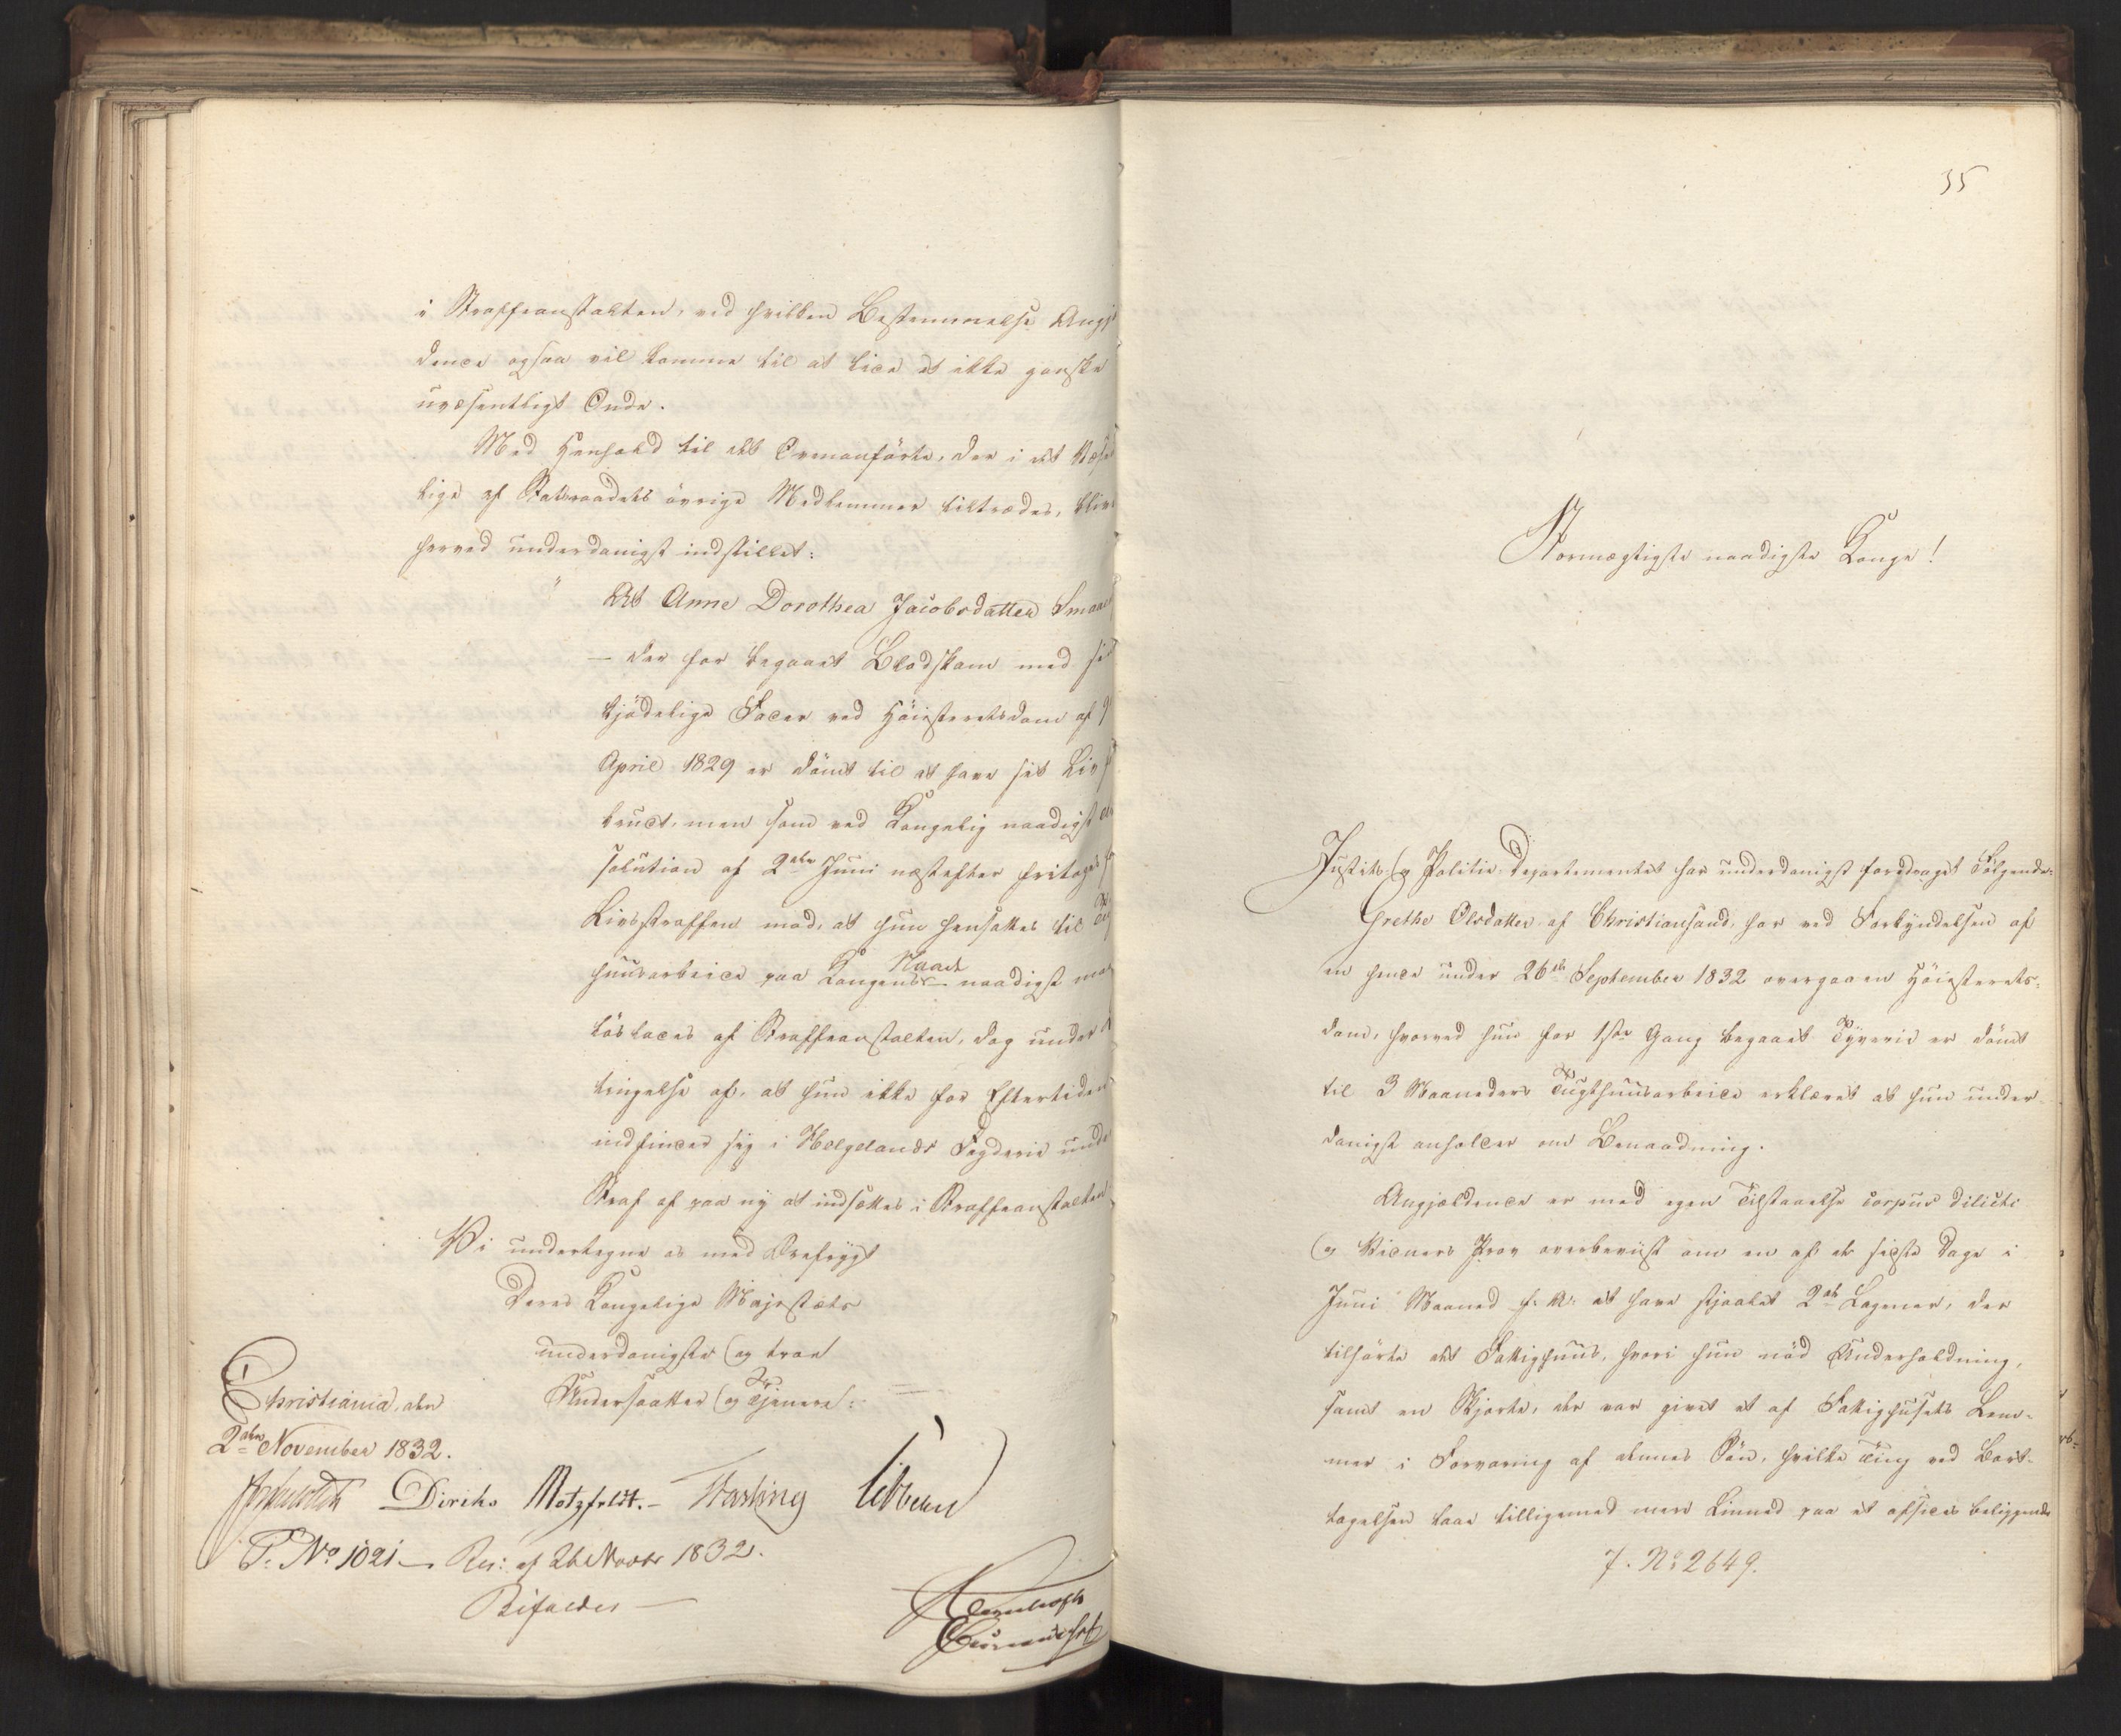 i Straffeanstalten, ved hvilken Bestemmelse Angj
dende ogsaa vil komme til at lide et ikke ganske
uvæsentligt Onde.
Med Henhold til det Ovenanførte, der i det Væse
lige af Statsraadets øvrige Medlemmer tiltrædes, blive
herved underdanigst indstillet:
" At Anne Dorothea Jacobsdatter Smaa
– der for begaaet Blodskam med sin
kjødelige Fader ved Høiesteretsdom af 9
April 1829 er dømt til at have sit Liv f
brudt, men som ved Kongelig naadigst
solution af 2den Juni næstefter fritoges f
Livsstraffen mod, at hun hensattes til Tug
huusarbeide paa Kongens Naade naadigst maa
løslades af Straffeanstalten, dog under
tingelse af, at hun ikke for Eftertiden
indfinder sig i Helgelands Fogderie unde
Straf af paa ny at indsættes i Straffeanstalten
Vi undertegne os med Ærefrygt
Deres Kongelige Majestæts
underdanigste og troe
Undersaatter og Tjenere:
Christiania, den
2den November 1832.
Diriks Motzfeldt. – Fasting
P. No 1021 – Res: af 26 Novbr 1832.
Bifaldes –
35
Stormægtigste naadigste Konge!
Justits og Politie Departementet har underdanigst foredraget Følgende:
Grethe Olsdatter af Christiansand, har ved Forkyndelsen af
en hende under 26de September 1832 overgaaen Høiesterets-
dom, hvorved hun for 1ste Gang begaaet Tyverie er dømt
til 3 Maaneders Tugthuusarbeide erklæret at hun under-
danigst anholder om Benaadning.
Angjældende er med egen Tilstaaelse corpus dilicti
og Vidners Prov overbeviist om en af de sidste Dage i
Juni Maaned f. A. at have stjaalet 2de Lagener, der
tilhørte det Fattighuus, hvori hun nød Underholdning,
samt en Skjorte, der var givet et af Fattighusets Lem-
mer i Forvaring af dennes Søn, hvilke Ting ved Bort-
tagelsen laae tilligemed mere Linned paa et afsides beliggende
J. No 2649.